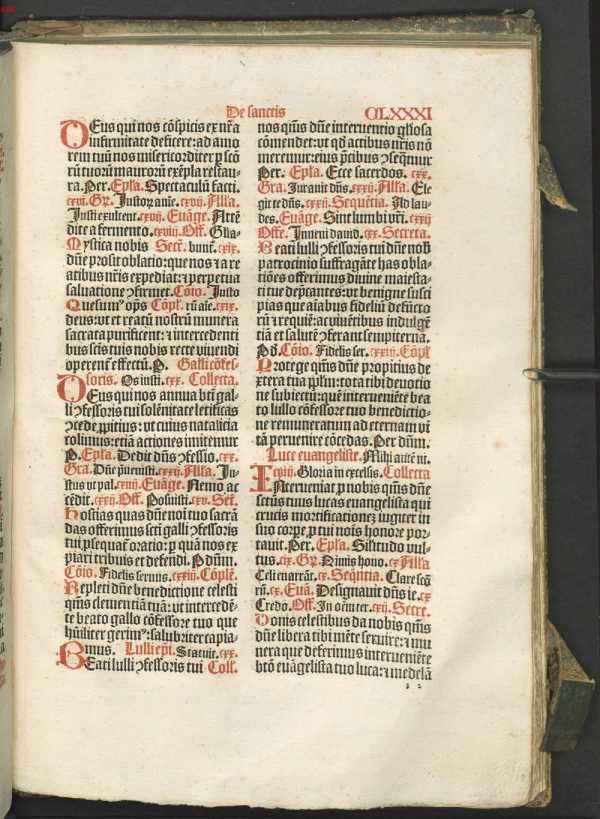 De sanctis CLXXXI
DEus qui nos cōspicis ex nr̄a
infirmitate deficere: ad amo
rem tuū nos misericorditer ꝑ scō
rū tuorū maurorū exēpla restau-
ra. Per. Epl̄a. Spectaculū facti.
cxvi. Gr̄. Justoꝝ aīe. cxvij. All̄a.
Justi exultent. cxvij. Euāge. Attē
dite a fermento. cxviij. Off. Glīa-
Mystica nobis Secr̄. bunt. cxix.
dn̄e prosit oblatio: que nos ⁊ a re
atibus nr̄is expediat: ⁊ perpetua
saluatione ꝯfirmet. Cōio. Justo
Quesumꝰ op̄s Cōpl̄. rū aīe. cxix.
deus: vt et reatū nostrū munera
sacrata purificent: ⁊ intercedenti
bus sctīs tuis nobis recte viuendi
operent̄ effectū. P. Galli cōfes-
soris. Os iusti. cxx. Collecta.
DEus qui nos annua bt̄i gal-
li ꝯfessoris tui solēnitate letificas
ꝯcede ꝓpitius: vt cuius natalicia
colimus: etiā actiones imitemur
P. Epl̄a. Dedit dn̄s ꝯfessio. cxx.
Gra. Dn̄e p̄uenisti. cxxij. All̄a. Ju-
stus vt pal. cxvij. Euāge. Nemo ac
cēdit. cxxij. Off. Posuisti. cxv. Sec̄.
Hostias quas dn̄e noī tuo sacrā
das offerimus sct̄i galli ꝯfessoris
tui ꝓsequat̄ oratio: ꝑ quā nos ex
piari tribuis et defendi. P dn̄m.
Cōio. Fidelis seruus. cxxiij. Cōplē.
Repleti dn̄e benedictione celesti
qm̄s clementiā tuā: vt intercedē-
te beato gallo ꝯfessore tuo que
hūiliter gerimꝰ: salubriter capia-
mus. Lulli ep̄i. Statuit. cxx.
BEati lulli ꝯfessoris tui Coll̄.
nos qm̄s dn̄e interuentio gl̄iosa
cōmendet: vt qd̄ actibus nr̄is nō
meremur: eius p̄cibus ꝯseqm̄ur
Per. Epl̄a. Ecce sacerdos. cxx.
Gra. Jurauit dn̄s. cxxij. All̄a. Ele
git te dn̄s. cxxij. Sequētia. Ad lau-
des. Euāge. Sint lumbi vr̄i. cxxij
Offr̄. Inueni dauid. cxx. Secreta.
Beati lulli ꝯfessoris tui dn̄e nob̄
patrocinio suffragāte has obla-
tiōes offerimus diuine maiesta-
ti tue dep̄cantes: vt benigne susci
pias que aīabus fideliū defūcto
rū ⁊ requiē: ac viuētibus indulgē
tiā et salutē ꝯferant sempiternā.
P d̄. Cōio. Fidelis ser. cxxiij. Cōpl̄
Protege qm̄s dn̄e propitius de-
xtera tua ppl̄m: tota tibi deuotio
ne subiectū: quē interueniēte bea-
to lullo cōfessore tuo benedictio-
ne remuneratum ad eternam vi
tā peruenire cōcedas. Per dn̄m.
Luce euangeliste. Mihi autē ni.
cviij. Gloria in excelsis. Collecta
INterueniat ꝓ nobis qm̄s dn̄e
sctūs tuus lucas euangelista qui
crucis mortificationeȝ iugiter in
suo corpe ꝓ tui noīs honore por-
tauit. Per. Epl̄a. Silitudo vul-
tus. cix. Gr̄. Nimis hono. cx All̄a
Celi enarrāt. cx. Seqn̄tia. Clare scō
rū. cx. Euā. Designauit dn̄s ie. cx
Credo. Off. In oēm ter. cxij. Secre.
Donis celestibus da nobis qm̄s
dn̄e libera tibi mēte seruire: ⁊ mu
nera que deferimus interueniēte
btō euāgelista tuo luca: ⁊ medelā